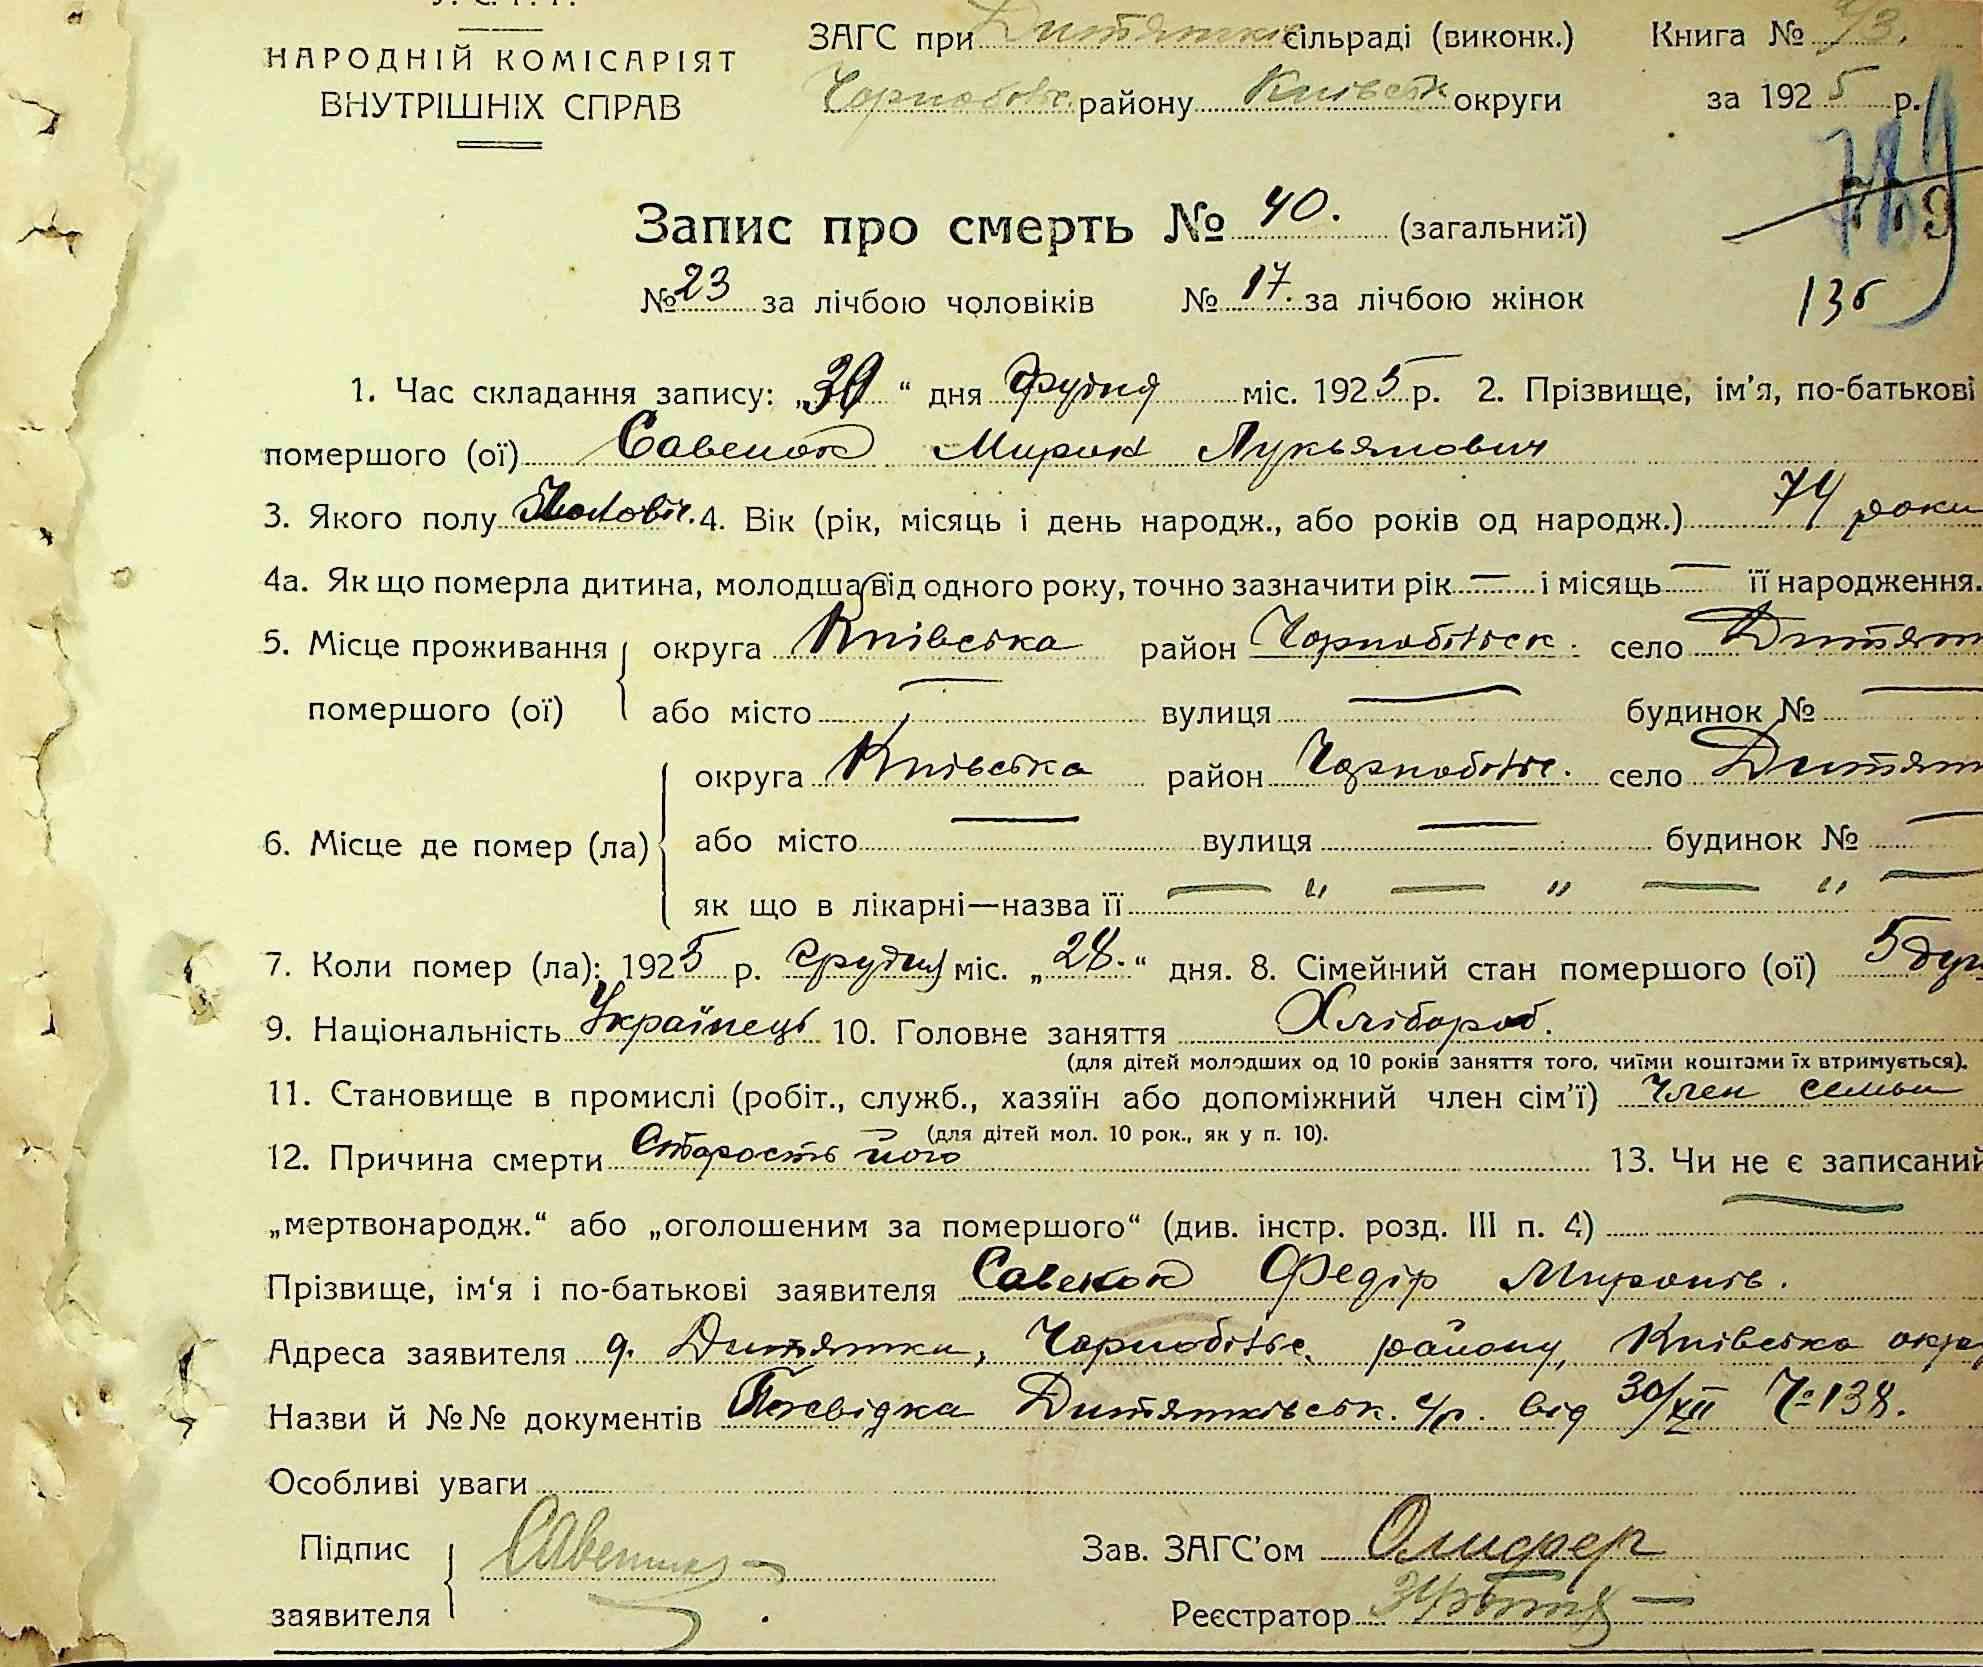 НАРОДНІЙ КОМІСАРІЯТ
ВНУТРІШНІХ СПРАВ
ЗАГС при Дитятків сільраді (виконк.) Книга №
Чорнобильс. району Київськ округи за 1925 р.
789
Запис про смерть № 40. (загальний)
№ 23 за лічбою чоловіків № 17. за лічбою жінок
136
1. Час складання запису: „30“ дня Грудня міс. 1925 р. 2. Прізвище, ім'я, по-батькові
помершого (ої) Савенок Мирон Лукьянович
3. Якого полу Чоловіч. 4. Вік (рік, місяць і день народж., або років од народж.) 74 роки
4а. Як що померла дитина, молодша від одного року, точно зазначити рік — і місяць — її народження.
5. Місце проживання помершого (ої) округа Київська район Чорнобильск. село Дитят
або місто — вулиця — будинок № —
6. Місце де помер (ла) округа Київська район Чорнобильс. село Дитят
або місто — вулиця — будинок № —
як що в лікарні—назва її — „ — „ — „ —
7. Коли помер (ла): 1925 р. Грудня міс. „28.“ дня. 8. Сімейний стан помершого (ої)
9. Національність Українець 10. Головне заняття Хлібороб.
(для дітей молодших од 10 років заняття того, чиїми коштами їх втримується).
11. Становище в промислі (робіт., служб., хазяїн або допоміжний член сім'ї) Член семьи
(для дітей мол. 10 рок., як у п. 10).
12. Причина смерти Старость його 13. Чи не є записаний
„мертвонародж.“ або „оголошеним за помершого“ (див. інстр. розд. III п. 4) —
Прізвище, ім'я і по-батькові заявителя Савенок Федір Миронів.
Адреса заявителя Дитятки, Чорнобильс. району, Київська окру
Назви й №№ документів Посвідка Дитятківськ. с/р. від 30/XII № 138.
Особливі уваги
Підпис заявителя Савенок
Зав. ЗАГС'ом Олифер
Реєстратор